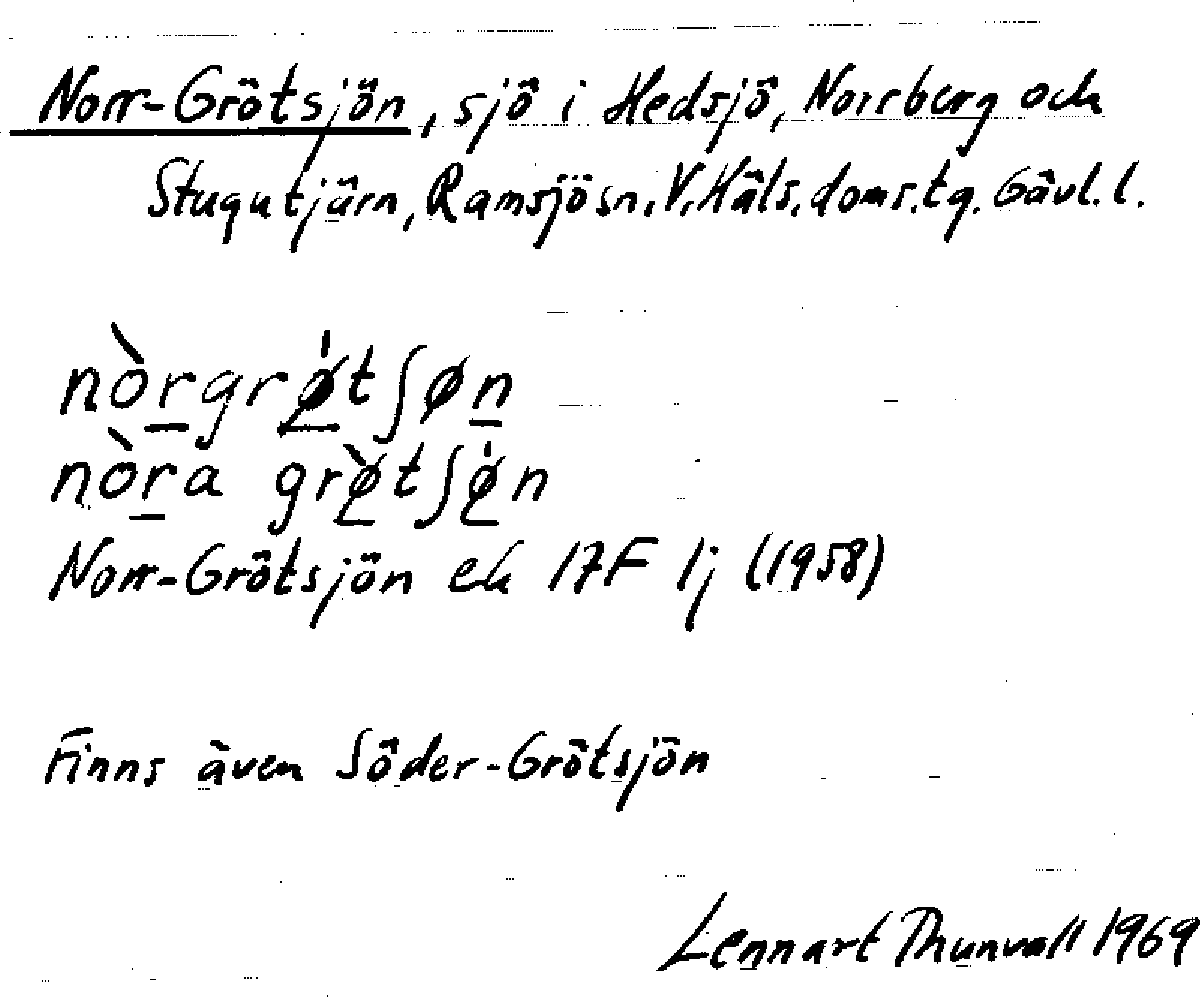 Norr-Grötsjön, sjö i Hedsjö, Norrberg och
Stugutjärn, Ramsjö sn, V. Häls. doms. tg. Gävl. l.
nòrgrø̀tʃøn
nòra grø̀tʃø̀n
Norr-Grötsjön ek 17F 1j (1958)
Finns även Söder-Grötsjön
Lennart Thunvall 1969